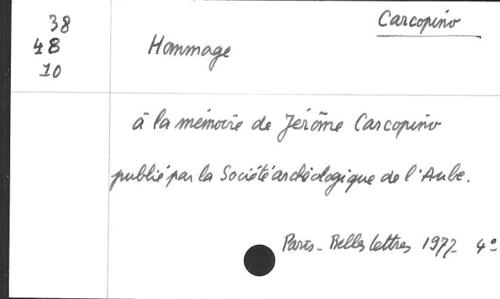 Carcopino
38
48
10
Hommage
à la mémoire de Jérôme Carcopino
publié par la Société archéologique de l'Aube.
Paris - Belles lettres 1977 4°